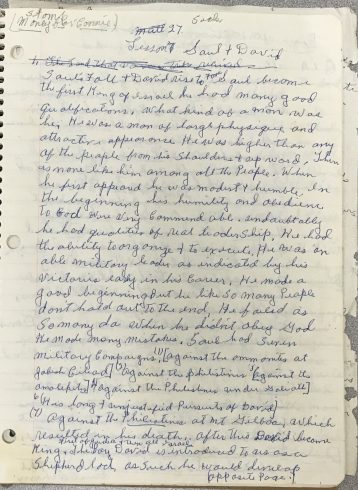 Stamps
Money for Connie
Sacks
Matt 27
Lesson Saul & David
Saul's Fall & David rise to Power Saul become
the first King of Israel he had many good
qualifications, What kind of a man was
he, He was a man of large physique and
attractive appearance He was higher than any
of the people from his Shoulders & upward. Then
as none like him among all the People. When
he first appeard he was modest & humble. In
the beginning his humility and obedience
to God were Very Commendable. undoubtably
he had qualities of real leadership. He had
the ability to organize & to execute. He was an
able military leader as indicated by his
Victories early in his Career. He made a
good beginning but he like So many People
dont hold out to the end. He failed as
So many do When he didnt obey God
He made many mistakes. Saul had Seven
military Campaigns, (1) [against the ammonites at
Jabesh Gilead] (2) [against the philistines] [against the
amalekites] [against the Philistines under Goliath]
6 [His long & unjustified Pursuits of David]
(7) against the Philistines at Mt Gilboa, which
resulted in his death. after this David become
King over all Israel
David is introduced to us as a
Shepherd lad, as Such he would develop
opposite page.